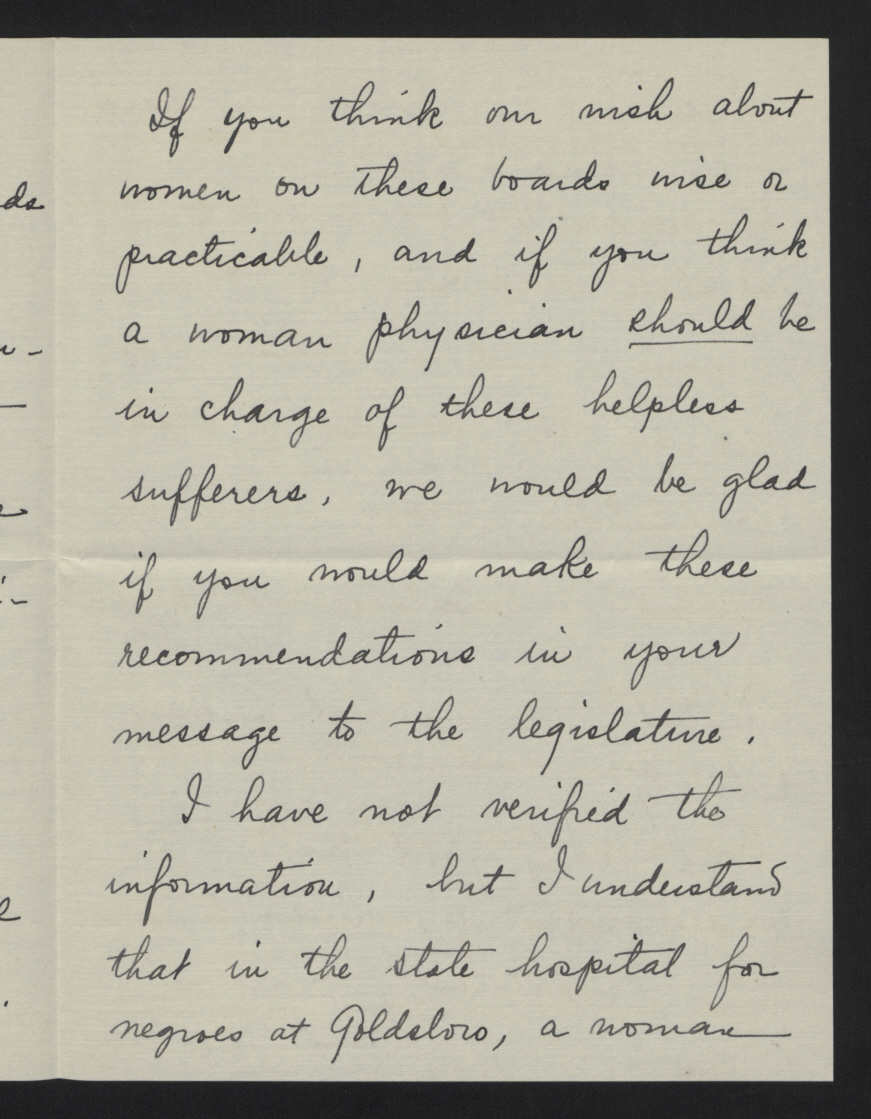 If you think our wish about
women on these boards wise or
practicable, and if you think
a woman physician should be
in charge of these helpless
sufferers, we would be glad
if you would make these
recommendations in your
message to the legislature.
I have not verified the
information, but I understand
that in the state hospital for
negroes at Goldsboro, a woman